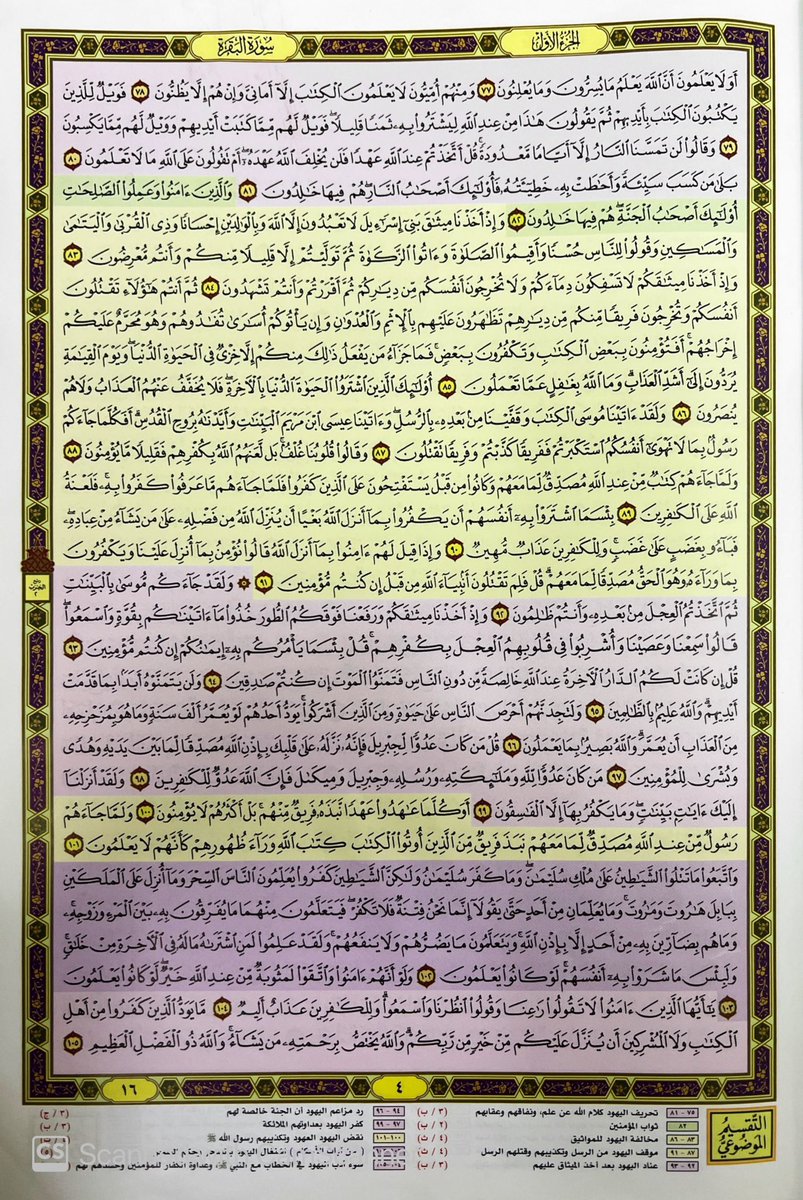 سُورَةُ البَقَرَةِ
الجُزْءُ الأَوَّلُ
أَوَلَا يَعْلَمُونَ أَنَّ ٱللَّهَ يَعْلَمُ مَا يُسِرُّونَ وَمَا يُعْلِنُونَ ٧٧ وَمِنْهُمْ أُمِّيُّونَ لَا يَعْلَمُونَ ٱلْكِتَٰبَ إِلَّآ أَمَانِىَّ وَإِنْ هُمْ إِلَّا يَظُنُّونَ ٧٨ فَوَيْلٌ لِّلَّذِينَ
يَكْتُبُونَ ٱلْكِتَٰبَ بِأَيْدِيهِمْ ثُمَّ يَقُولُونَ هَٰذَا مِنْ عِندِ ٱللَّهِ لِيَشْتَرُوا۟ بِهِۦ ثَمَنًا قَلِيلًا ۖ فَوَيْلٌ لَّهُم مِّمَّا كَتَبَتْ أَيْدِيهِمْ وَوَيْلٌ لَّهُم مِّمَّا يَكْسِبُونَ
٧٩ وَقَالُوا۟ لَن تَمَسَّنَا ٱلنَّارُ إِلَّآ أَيَّامًا مَّعْدُودَةً ۚ قُلْ أَتَّخَذْتُمْ عِندَ ٱللَّهِ عَهْدًا فَلَن يُخْلِفَ ٱللَّهُ عَهْدَهُۥٓ ۖ أَمْ تَقُولُونَ عَلَى ٱللَّهِ مَا لَا تَعْلَمُونَ ٨٠
بَلَىٰ مَن كَسَبَ سَيِّئَةً وَأَحَٰطَتْ بِهِۦ خَطِيٓـَٔتُهُۥ فَأُو۟لَٰٓئِكَ أَصْحَٰبُ ٱلنَّارِ ۖ هُمْ فِيهَا خَٰلِدُونَ ٨١ وَٱلَّذِينَ ءَامَنُوا۟ وَعَمِلُوا۟ ٱلصَّٰلِحَٰتِ
أُو۟لَٰٓئِكَ أَصْحَٰبُ ٱلْجَنَّةِ ۖ هُمْ فِيهَا خَٰلِدُونَ ٨٢ وَإِذْ أَخَذْنَا مِيثَٰقَ بَنِىٓ إِسْرَٰٓءِيلَ لَا تَعْبُدُونَ إِلَّا ٱللَّهَ وَبِٱلْوَٰلِدَيْنِ إِحْسَانًا وَذِى ٱلْقُرْبَىٰ وَٱلْيَتَٰمَىٰ
وَٱلْمَسَٰكِينِ وَقُولُوا۟ لِلنَّاسِ حُسْنًا وَأَقِيمُوا۟ ٱلصَّلَوٰةَ وَءَاتُوا۟ ٱلزَّكَوٰةَ ثُمَّ تَوَلَّيْتُمْ إِلَّا قَلِيلًا مِّنكُمْ وَأَنتُم مُّعْرِضُونَ ٨٣
وَإِذْ أَخَذْنَا مِيثَٰقَكُمْ لَا تَسْفِكُونَ دِمَآءَكُمْ وَلَا تُخْرِجُونَ أَنفُسَكُم مِّن دِيَٰرِكُمْ ثُمَّ أَقْرَرْتُمْ وَأَنتُمْ تَشْهَدُونَ ٨٤ ثُمَّ أَنتُمْ هَٰٓؤُلَآءِ تَقْتُلُونَ
أَنفُسَكُمْ وَتُخْرِجُونَ فَرِيقًا مِّنكُم مِّن دِيَٰرِهِمْ تَظَٰهَرُونَ عَلَيْهِم بِٱلْإِثْمِ وَٱلْعُدْوَٰنِ وَإِن يَأْتُوكُمْ أُسَٰرَىٰ تُفَٰدُوهُمْ وَهُوَ مُحَرَّمٌ عَلَيْكُمْ
إِخْرَاجُهُمْ ۚ أَفَتُؤْمِنُونَ بِبَعْضِ ٱلْكِتَٰبِ وَتَكْفُرُونَ بِبَعْضٍ ۚ فَمَا جَزَآءُ مَن يَفْعَلُ ذَٰلِكَ مِنكُمْ إِلَّا خِزْىٌ فِى ٱلْحَيَوٰةِ ٱلدُّنْيَا ۖ وَيَوْمَ ٱلْقِيَٰمَةِ
يُرَدُّونَ إِلَىٰٓ أَشَدِّ ٱلْعَذَابِ ۗ وَمَا ٱللَّهُ بِغَٰفِلٍ عَمَّا تَعْمَلُونَ ٨٥ أُو۟لَٰٓئِكَ ٱلَّذِينَ ٱشْتَرَوُا۟ ٱلْحَيَوٰةَ ٱلدُّنْيَا بِٱلْءَاخِرَةِ ۖ فَلَا يُخَفَّفُ عَنْهُمُ ٱلْعَذَابُ وَلَا هُمْ
يُنصَرُونَ ٨٦ وَلَقَدْ ءَاتَيْنَا مُوسَى ٱلْكِتَٰبَ وَقَفَّيْنَا مِنۢ بَعْدِهِۦ بِٱلرُّسُلِ ۖ وَءَاتَيْنَا عِيسَى ٱبْنَ مَرْيَمَ ٱلْبَيِّنَٰتِ وَأَيَّدْنَٰهُ بِرُوحِ ٱلْقُدُسِ ۗ أَفَكُلَّمَا جَآءَكُمْ
رَسُولٌۢ بِمَا لَا تَهْوَىٰٓ أَنفُسُكُمُ ٱسْتَكْبَرْتُمْ فَفَرِيقًا كَذَّبْتُمْ وَفَرِيقًا تَقْتُلُونَ ٨٧ وَقَالُوا۟ قُلُوبُنَا غُلْفٌۢ ۚ بَل لَّعَنَهُمُ ٱللَّهُ بِكُفْرِهِمْ فَقَلِيلًا مَّا يُؤْمِنُونَ ٨٨
وَلَمَّا جَآءَهُمْ كِتَٰبٌ مِّنْ عِندِ ٱللَّهِ مُصَدِّقٌ لِّمَا مَعَهُمْ وَكَانُوا۟ مِن قَبْلُ يَسْتَفْتِحُونَ عَلَى ٱلَّذِينَ كَفَرُوا۟ فَلَمَّا جَآءَهُم مَّا عَرَفُوا۟ كَفَرُوا۟ بِهِۦ ۚ فَلَعْنَةُ
ٱللَّهِ عَلَى ٱلْكَٰفِرِينَ ٨٩ بِئْسَمَا ٱشْتَرَوْا۟ بِهِۦٓ أَنفُسَهُمْ أَن يَكْفُرُوا۟ بِمَآ أَنزَلَ ٱللَّهُ بَغْيًا أَن يُنَزِّلَ ٱللَّهُ مِن فَضْلِهِۦ عَلَىٰ مَن يَشَآءُ مِنْ عِبَادِهِۦ ۖ
فَبَآءُو بِغَضَبٍ عَلَىٰ غَضَبٍ ۚ وَلِلْكَٰفِرِينَ عَذَابٌ مُّهِينٌ ٩٠ وَإِذَا قِيلَ لَهُمْ ءَامِنُوا۟ بِمَآ أَنزَلَ ٱللَّهُ قَالُوا۟ نُؤْمِنُ بِمَآ أُنزِلَ عَلَيْنَا وَيَكْفُرُونَ
بِمَا وَرَآءَهُۥ وَهُوَ ٱلْحَقُّ مُصَدِّقًا لِّمَا مَعَهُمْ ۗ قُلْ فَلِمَ تَقْتُلُونَ أَنۢبِيَآءَ ٱللَّهِ مِن قَبْلُ إِن كُنتُم مُّؤْمِنِينَ ٩١ ۞ وَلَقَدْ جَآءَكُم مُّوسَىٰ بِٱلْبَيِّنَٰتِ
ثُمَّ ٱتَّخَذْتُمُ ٱلْعِجْلَ مِنۢ بَعْدِهِۦ وَأَنتُمْ ظَٰلِمُونَ ٩٢ وَإِذْ أَخَذْنَا مِيثَٰقَكُمْ وَرَفَعْنَا فَوْقَكُمُ ٱلطُّورَ خُذُوا۟ مَآ ءَاتَيْنَٰكُم بِقُوَّةٍ وَٱسْمَعُوا۟ ۖ
قَالُوا۟ سَمِعْنَا وَعَصَيْنَا وَأُشْرِبُوا۟ فِى قُلُوبِهِمُ ٱلْعِجْلَ بِكُفْرِهِمْ ۚ قُلْ بِئْسَمَا يَأْمُرُكُم بِهِۦٓ إِيمَٰنُكُمْ إِن كُنتُم مُّؤْمِنِينَ ٩٣
قُلْ إِن كَانَتْ لَكُمُ ٱلدَّارُ ٱلْءَاخِرَةُ عِندَ ٱللَّهِ خَالِصَةً مِّن دُونِ ٱلنَّاسِ فَتَمَنَّوُا۟ ٱلْمَوْتَ إِن كُنتُمْ صَٰدِقِينَ ٩٤ وَلَن يَتَمَنَّوْهُ أَبَدًۢا بِمَا قَدَّمَتْ
أَيْدِيهِمْ ۗ وَٱللَّهُ عَلِيمٌۢ بِٱلظَّٰلِمِينَ ٩٥ وَلَتَجِدَنَّهُمْ أَحْرَصَ ٱلنَّاسِ عَلَىٰ حَيَوٰةٍ وَمِنَ ٱلَّذِينَ أَشْرَكُوا۟ ۚ يَوَدُّ أَحَدُهُمْ لَوْ يُعَمَّرُ أَلْفَ سَنَةٍ وَمَا هُوَ بِمُزَحْزِحِهِۦ
مِنَ ٱلْعَذَابِ أَن يُعَمَّرَ ۗ وَٱللَّهُ بَصِيرٌۢ بِمَا يَعْمَلُونَ ٩٦ قُلْ مَن كَانَ عَدُوًّا لِّجِبْرِيلَ فَإِنَّهُۥ نَزَّلَهُۥ عَلَىٰ قَلْبِكَ بِإِذْنِ ٱللَّهِ مُصَدِّقًا لِّمَا بَيْنَ يَدَيْهِ وَهُدًى
وَبُشْرَىٰ لِلْمُؤْمِنِينَ ٩٧ مَن كَانَ عَدُوًّا لِّلَّهِ وَمَلَٰٓئِكَتِهِۦ وَرُسُلِهِۦ وَجِبْرِيلَ وَمِيكَىٰلَ فَإِنَّ ٱللَّهَ عَدُوٌّ لِّلْكَٰفِرِينَ ٩٨ وَلَقَدْ أَنزَلْنَآ
إِلَيْكَ ءَايَٰتٍۭ بَيِّنَٰتٍ ۖ وَمَا يَكْفُرُ بِهَآ إِلَّا ٱلْفَٰسِقُونَ ٩٩ أَوَكُلَّمَا عَٰهَدُوا۟ عَهْدًا نَّبَذَهُۥ فَرِيقٌ مِّنْهُم ۚ بَلْ أَكْثَرُهُمْ لَا يُؤْمِنُونَ ١٠٠ وَلَمَّا جَآءَهُمْ
رَسُولٌ مِّنْ عِندِ ٱللَّهِ مُصَدِّقٌ لِّمَا مَعَهُمْ نَبَذَ فَرِيقٌ مِّنَ ٱلَّذِينَ أُوتُوا۟ ٱلْكِتَٰبَ كِتَٰبَ ٱللَّهِ وَرَآءَ ظُهُورِهِمْ كَأَنَّهُمْ لَا يَعْلَمُونَ ١٠١
وَٱتَّبَعُوا۟ مَا تَتْلُوا۟ ٱلشَّيَٰطِينُ عَلَىٰ مُلْكِ سُلَيْمَٰنَ ۖ وَمَا كَفَرَ سُلَيْمَٰنُ وَلَٰكِنَّ ٱلشَّيَٰطِينَ كَفَرُوا۟ يُعَلِّمُونَ ٱلنَّاسَ ٱلسِّحْرَ وَمَآ أُنزِلَ عَلَى ٱلْمَلَكَيْنِ
بِبَابِلَ هَٰرُوتَ وَمَٰرُوتَ ۚ وَمَا يُعَلِّمَانِ مِنْ أَحَدٍ حَتَّىٰ يَقُولَآ إِنَّمَا نَحْنُ فِتْنَةٌ فَلَا تَكْفُرْ ۖ فَيَتَعَلَّمُونَ مِنْهُمَا مَا يُفَرِّقُونَ بِهِۦ بَيْنَ ٱلْمَرْءِ وَزَوْجِهِۦ ۚ
وَمَا هُم بِضَآرِّينَ بِهِۦ مِنْ أَحَدٍ إِلَّا بِإِذْنِ ٱللَّهِ ۚ وَيَتَعَلَّمُونَ مَا يَضُرُّهُمْ وَلَا يَنفَعُهُمْ ۚ وَلَقَدْ عَلِمُوا۟ لَمَنِ ٱشْتَرَىٰهُ مَا لَهُۥ فِى ٱلْءَاخِرَةِ مِنْ خَلَٰقٍ ۚ
وَلَبِئْسَ مَا شَرَوْا۟ بِهِۦٓ أَنفُسَهُمْ ۚ لَوْ كَانُوا۟ يَعْلَمُونَ ١٠٢ وَلَوْ أَنَّهُمْ ءَامَنُوا۟ وَٱتَّقَوْا۟ لَمَثُوبَةٌ مِّنْ عِندِ ٱللَّهِ خَيْرٌ ۖ لَّوْ كَانُوا۟ يَعْلَمُونَ
١٠٣ يَٰٓأَيُّهَا ٱلَّذِينَ ءَامَنُوا۟ لَا تَقُولُوا۟ رَٰعِنَا وَقُولُوا۟ ٱنظُرْنَا وَٱسْمَعُوا۟ ۗ وَلِلْكَٰفِرِينَ عَذَابٌ أَلِيمٌ ١٠٤ مَّا يَوَدُّ ٱلَّذِينَ كَفَرُوا۟ مِنْ أَهْلِ
ٱلْكِتَٰبِ وَلَا ٱلْمُشْرِكِينَ أَن يُنَزَّلَ عَلَيْكُم مِّنْ خَيْرٍ مِّن رَّبِّكُمْ ۗ وَٱللَّهُ يَخْتَصُّ بِرَحْمَتِهِۦ مَن يَشَآءُ ۚ وَٱللَّهُ ذُو ٱلْفَضْلِ ٱلْعَظِيمِ ١٠٥
ربع الحزب ٢
٤
١٦
التقسيم الموضوعي
٧٥ - ٨١ تحريف اليهود كلام الله عن علم، ونفاقهم وعقابهم (٣ / ب)
٨٢ ثواب المؤمنين (٢ / ب)
٨٣ - ٨٦ مخالفة اليهود للمواثيق (٤ / ث)
٨٧ - ٩١ موقف اليهود من الرسل وتكذيبهم وقتلهم الرسل (٤ / ث)
٩٢ - ٩٣ عناد اليهود بعد أخذ الميثاق عليهم (٣ / ب)
٩٤ - ٩٦ رد مزاعم اليهود أن الجنة خالصة لهم (٣ / ج)
٩٧ - ٩٩ كفر اليهود بعداوتهم الملائكة (٣ / ب)
١٠٠-١٠١ نقض اليهود العهود وتكذيبهم رسول الله ﷺ
سوء أدب اليهود في الخطاب مع النبي ﷺ وعداوة الكفار للمؤمنين وحسدهم لهم
CS